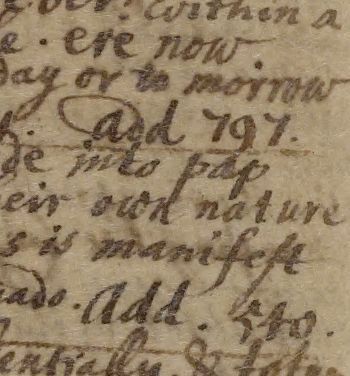 within a
e. ere now
day or to morrow
t. add 797.
de into pap
eir own nature
s is manifest
ado. Add. 540.
entially. &